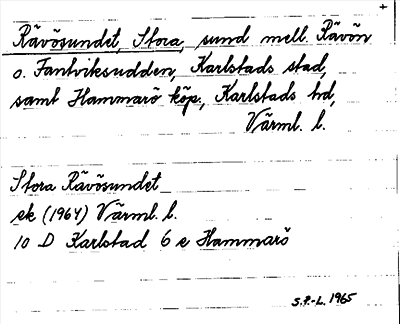 +
Rävösundet, Stora, sund mell. Rävön
o. Fantviksudden, Karlstads stad,
samt Hammarö köp., Karlstads hd,
Värml. l.
Stora Rävösundet
ek (1964) Värml. l.
10 D Karlstad 6 e Hammarö
S.P.-L. 1965